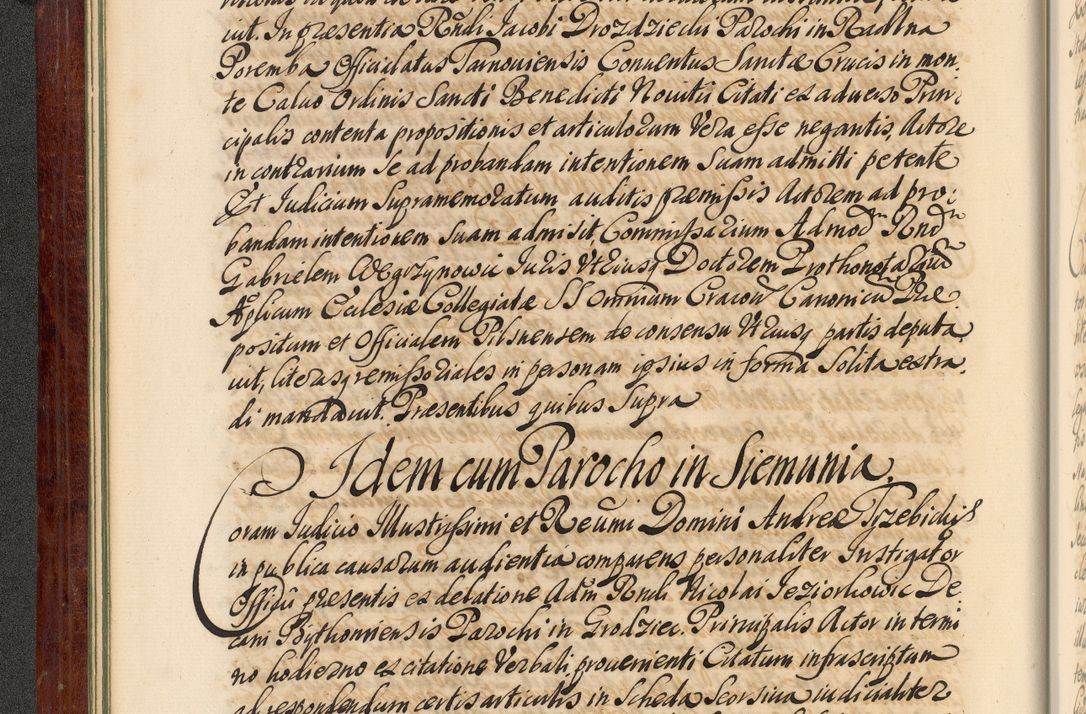 uit. In præsentia Rndi Iacobi Drozdziecki Parochi in Radlna
Poremba Officialatus Tarnouiensis Conuentus Sanctæ Crucis in mon
te Caluo Ordinis Sancti Benedicti Nouitii Citati ex aduerso Prin
cipalis contenta propositionis et articulorum Vera esse negantis, Actore
in contrarium se ad probandam intentionem suam admitti petente
Et Iudicium Supramemoratum auditis præmissis Actorem ad pro:
bandam intentionem suam admisit, Commissarium Admod Rnd
Gabrielem Węgrzynowic Iuris Vtriusq Doctorem Prothonotarium
Aplicum Ecclesiæ Collegiatæ SS Omnium Cracou Canonicum Præ
positum et Officialem Pilsnensem de consensu Vtriusq partis deputa
uit, literasq remissoriales in personam ipsius in forma solita extra
di mandauit. Præsentibus quibus supra
Idem cum Parocho in Siemunia.
Coram Iudicio Illustrissimi et Reumi Domini Andreæ Trzebicki
in publica causarum audientia comparens personaliter Instigator
Officii præsentis ex delatione Adm Rndi Nicolai Ieziorkowic De
cani Bythomiensis Parochi in Grodziec. Principalis Actor in termi
no hodierno ex citatione Verbali prouenienti Citatum infrascriptum
ad respondendum certis articulis in Scheda Seorsiua iudicialiter